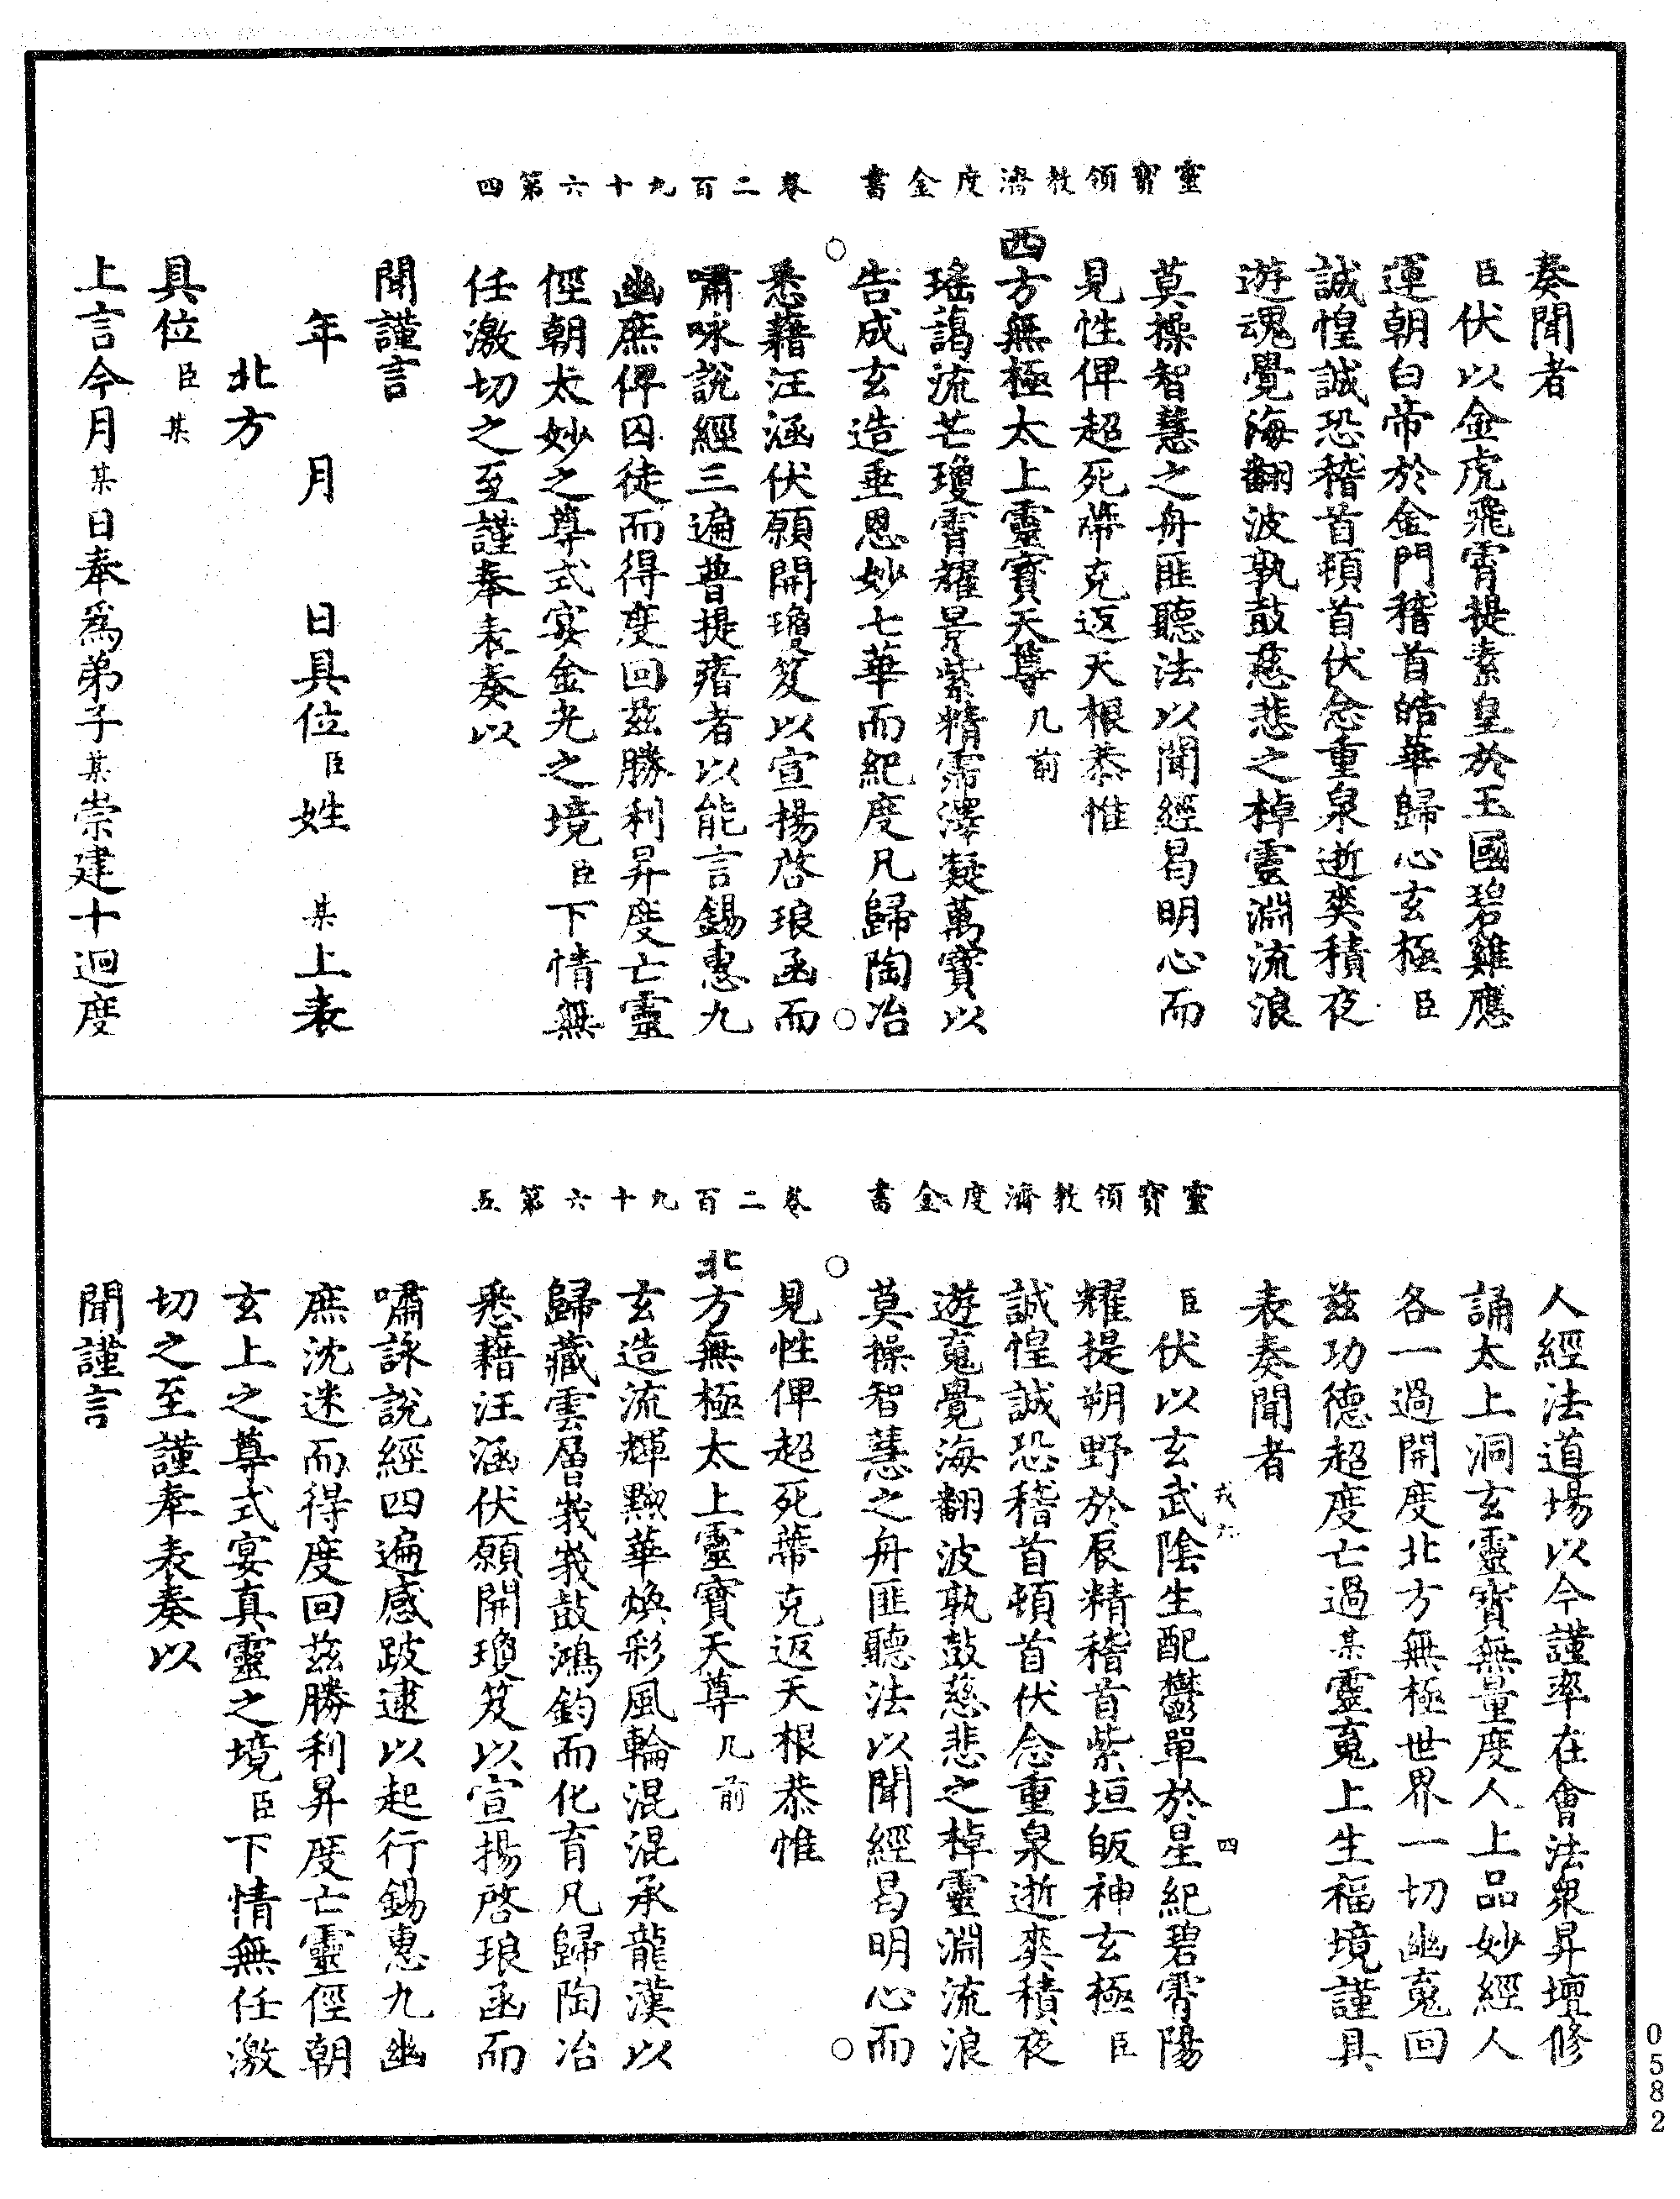 靈寶領教濟度金書　卷二百九十六第四
奏聞者
臣伏以金虎飛霄提素皇於玉國碧雞應
運朝白帝於金門稽首皓華歸心玄極臣
誠惶誠恐稽首頓首伏念重泉逝爽積夜
遊魂覺海翻波孰鼓慈悲之棹靈淵流浪
莫操智慧之舟匪聽法以聞經曷明心而
見性俾超死蔕克返天根恭惟
西方無極太上靈寶天尊几前
瑤藹流芒瓊霄耀景紫精霈澤凝萬寶以
告成玄造垂恩妙七華而紀度凡歸陶冶
悉藉汪涵伏願開瓊笈以宣揚啓琅函而
嘯咏說經三遍普提瘖者以能言錫惠九
幽庶俾囚徒而得度回茲勝利昇度亡靈
徑朝太妙之尊式宴金光之境臣下情無
任激切之至謹奉表奏以
聞謹言
年　月　日具位臣姓　某上表
北方
具位臣某
上言今月某日奉爲弟子某崇建十迴度
靈寶領教濟度金書　卷二百九十六第五
人經法道場以今謹率在會法衆昇壇修
誦太上洞玄靈寶無量度人上品妙經人
各一過開度北方無極世界一切幽䰟回
茲功德超度亡過某靈䰟上生福境謹具
表奏聞者
臣伏以玄武陰生配鬱單於星紀碧霄陽
耀提朔野於辰精稽首紫垣皈神玄極臣
誠惶誠恐稽首頓首伏念重泉逝爽積夜
遊䰟覺海翻波孰鼓慈悲之棹靈淵流浪
莫操智慧之舟匪聽法以聞經曷明心而
見性俾超死蔕克返天根恭惟
北方無極太上靈寶天尊几前
玄造流輝黙華煥彩風輪混混承龍漢以
歸藏雲層峩峩鼓鴻鈞而化育凡歸陶冶
悉藉汪涵伏願開瓊笈以宣揚啓琅函而
嘯詠說經四遍感跛逮以起行錫惠九幽
庶沈迷而得度回茲勝利昇度亡靈徑朝
玄上之尊式宴真靈之境臣下情無任激
切之至謹奉表奏以
聞謹言
四
0582